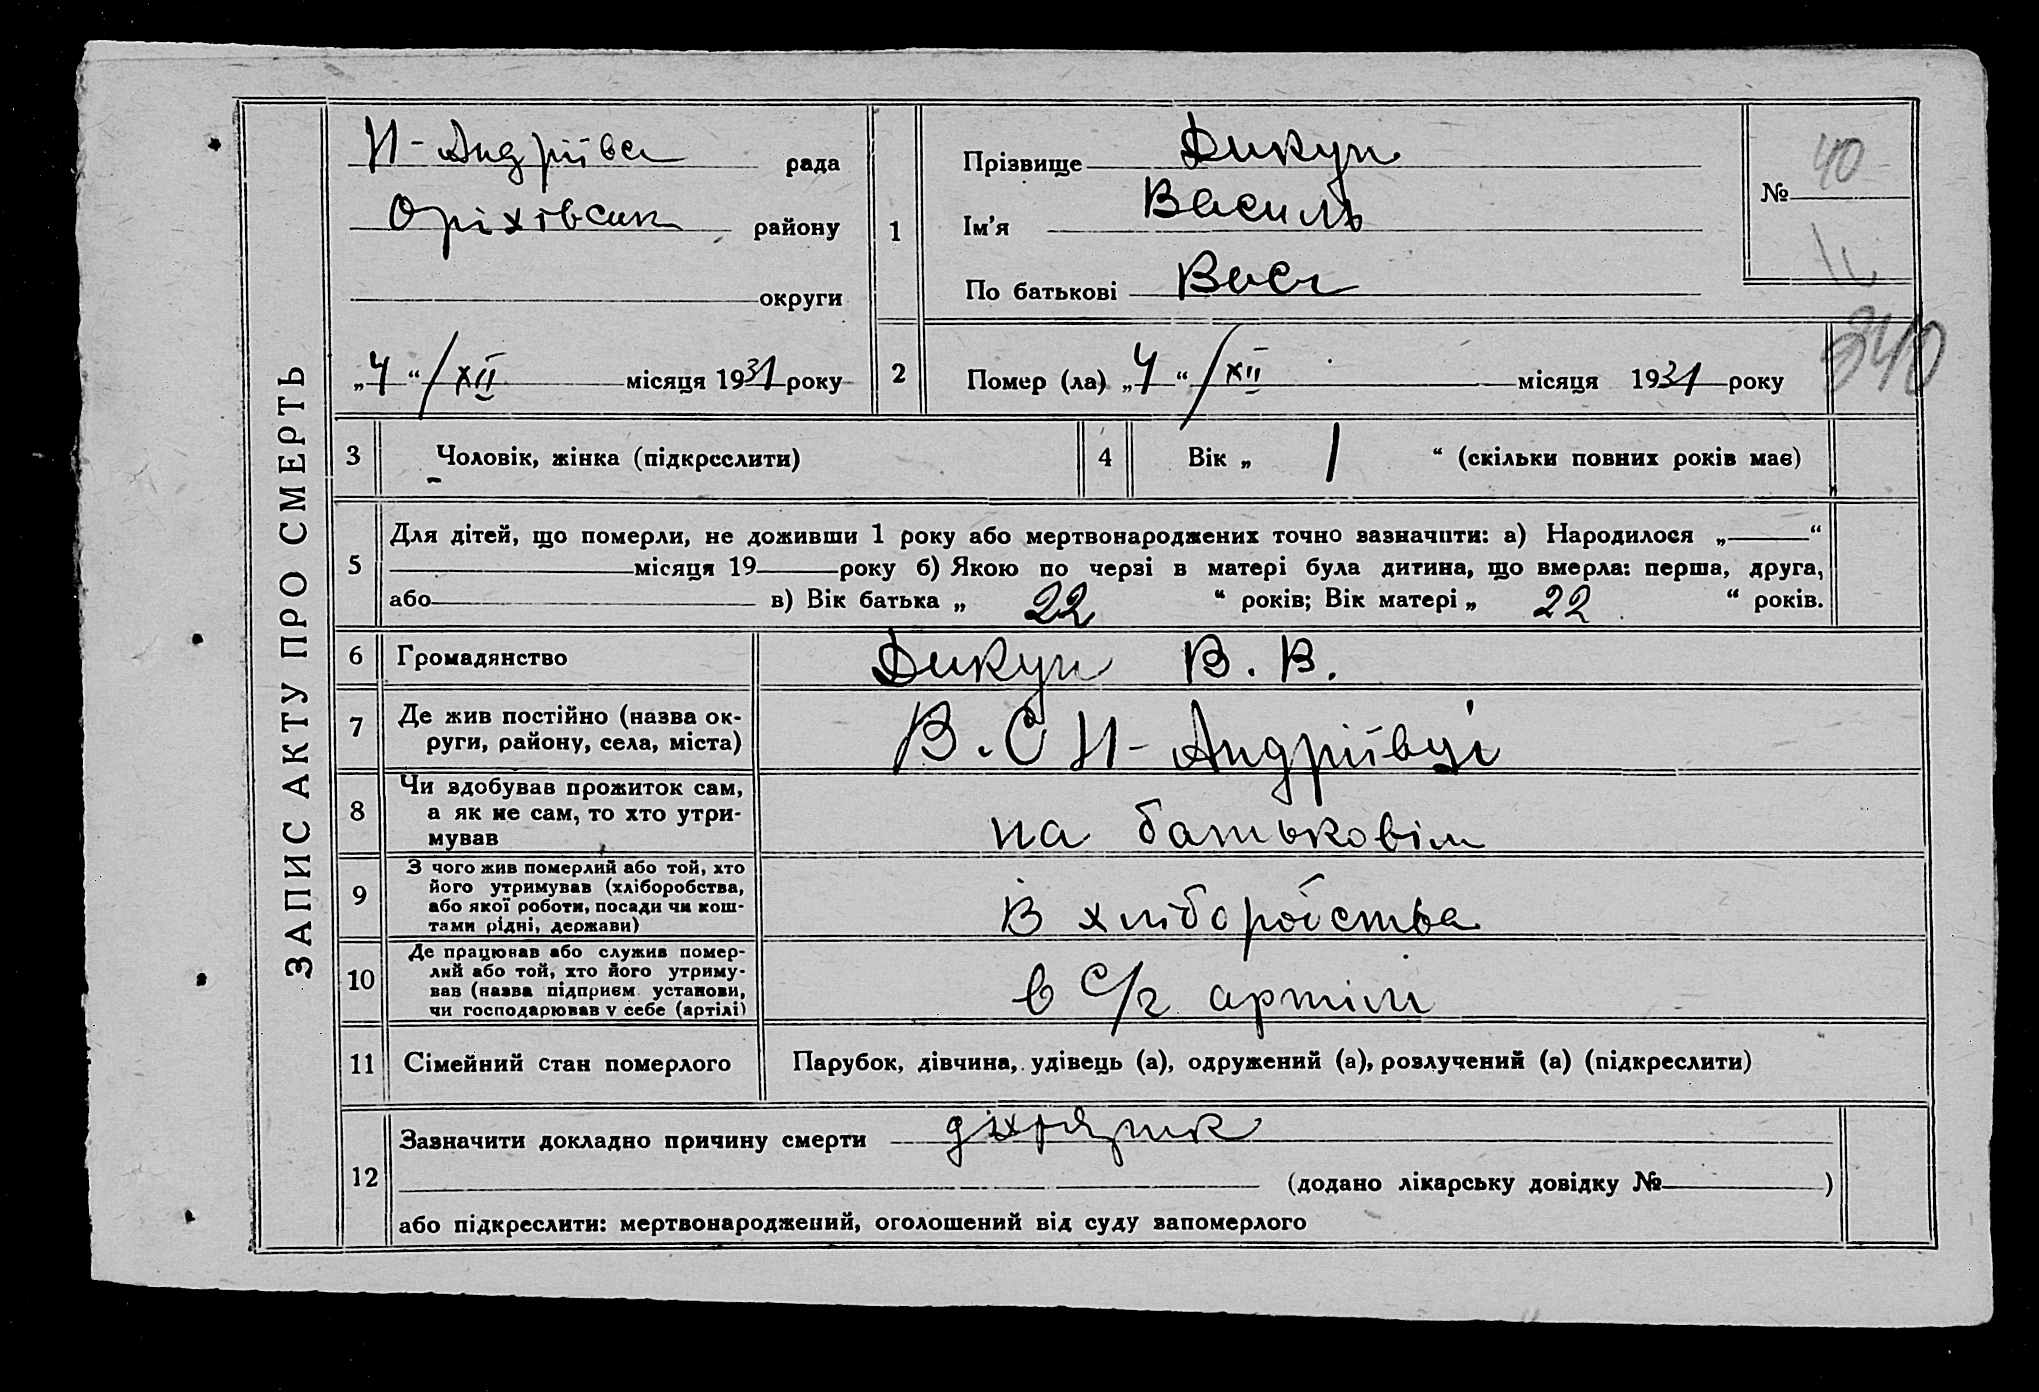 ЗАПИС АКТУ ПРО СМЕРТЬ
Н-Андріївсь рада
Оріхівськ району
округи
„4“/XII місяця 1931 року
1
Прізвище Дикун
Ім'я Василь
По батькові Вас
№ 40
340
2 Помер (ла) „4“/XII місяця 1931 року
3 Чоловік, жінка (підкреслити)
4 Вік „ 1 “ (скільки повних років має)
5 Для дітей, що померли, не доживши 1 року або мертвонароджених точно зазначити: а) Народилося „ “
місяця 19 року б) Якою по черзі в матері була дитина, що вмерла: перша, друга,
або в) Вік батька „ 22 “ років; Вік матері „ 22 “ років.
6 Громадянство Дикун В. В.
7 Де жив постійно (назва ок-
руги, району, села, міста) В. С Н-Андріївці
8 Чи здобував прожиток сам,
а як не сам, то хто утри-
мував на батьковім
9 З чого жив померлий або той, хто
його утримував (хліборобства,
або якої роботи, посади чи кош-
тами рідні, держави) З хліборобства
10 Де працював або служив помер-
лий або той, хто його утриму-
вав (назва підприєм. установи,
чи господарював у себе (артілі) в С/г артілі
11 Сімейний стан померлого Парубок, дівчина, удівець (а), одружений (а), розлучений (а) (підкреслити)
12 Зазначити докладно причину смерти
(додано лікарську довідку № )
або підкреслити: мертвонароджений, оголошений від суду запомерлого